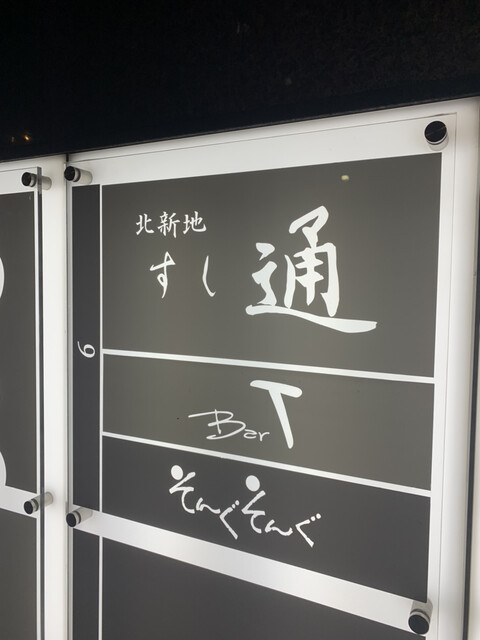 北新地
すし 通
6
Bar T
そんぐそんぐ